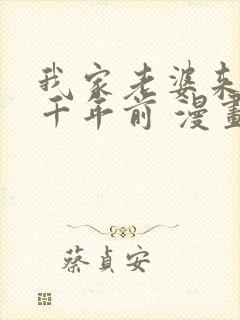 我家老婆来
千年前 漫畫
蔡貞安